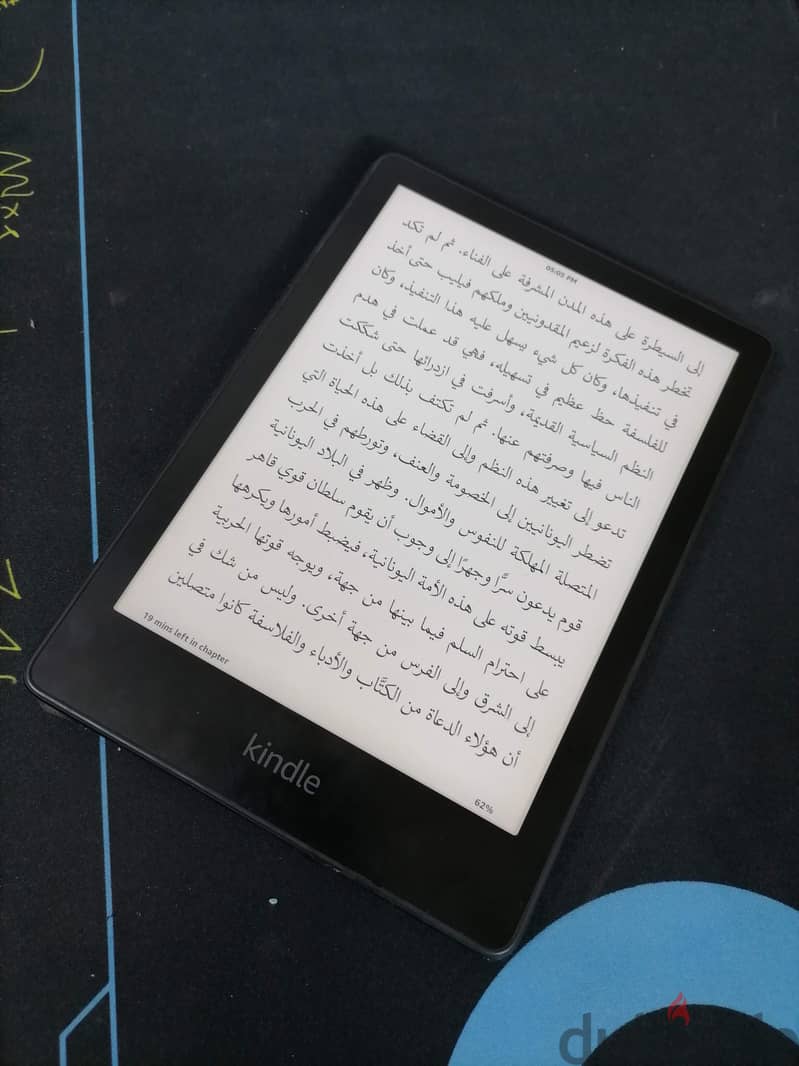 05:05 PM
إلى السيطرة على هذه المدن المشرفة على الفناء. ثم لم تكد
تخطر هذه الفكرة لزعيم المقدونيين وملكهم فيليب حتى أخذ
في تنفيذها، وكان كل شيء يسهل عليه هذا التنفيذ، وكان
للفلسفة حظ عظيم في تسهيله، فهي قد عملت في هدم
النظم السياسية القديمة، وأسرفت في ازدرائها حتى شككت
الناس فيها وصرفتهم عنها. ثم لم تكتف بذلك بل أخذت
تدعو إلى تغيير هذه النظم وإلى القضاء على هذه الحياة التي
تضطر اليونانيين إلى الخصومة والعنف، وتورطهم في الحرب
المتصلة المهلكة للنفوس والأموال. وظهر في البلاد اليونانية
قوم يدعون سرًّا وجهرًا إلى وجوب أن يقوم سلطان قوي قاهر
يبسط قوته على هذه الأمة اليونانية، فيضبط أمورها ويكرهها
على احترام السلم فيما بينها من جهة، ويوجه قوتها الحربية
إلى الشرق وإلى الفرس من جهة أخرى. وليس من شك في
أن هؤلاء الدعاة من الكتَّاب والأدباء والفلاسفة كانوا متصلين
19 mins left in chapter
62%
kindle